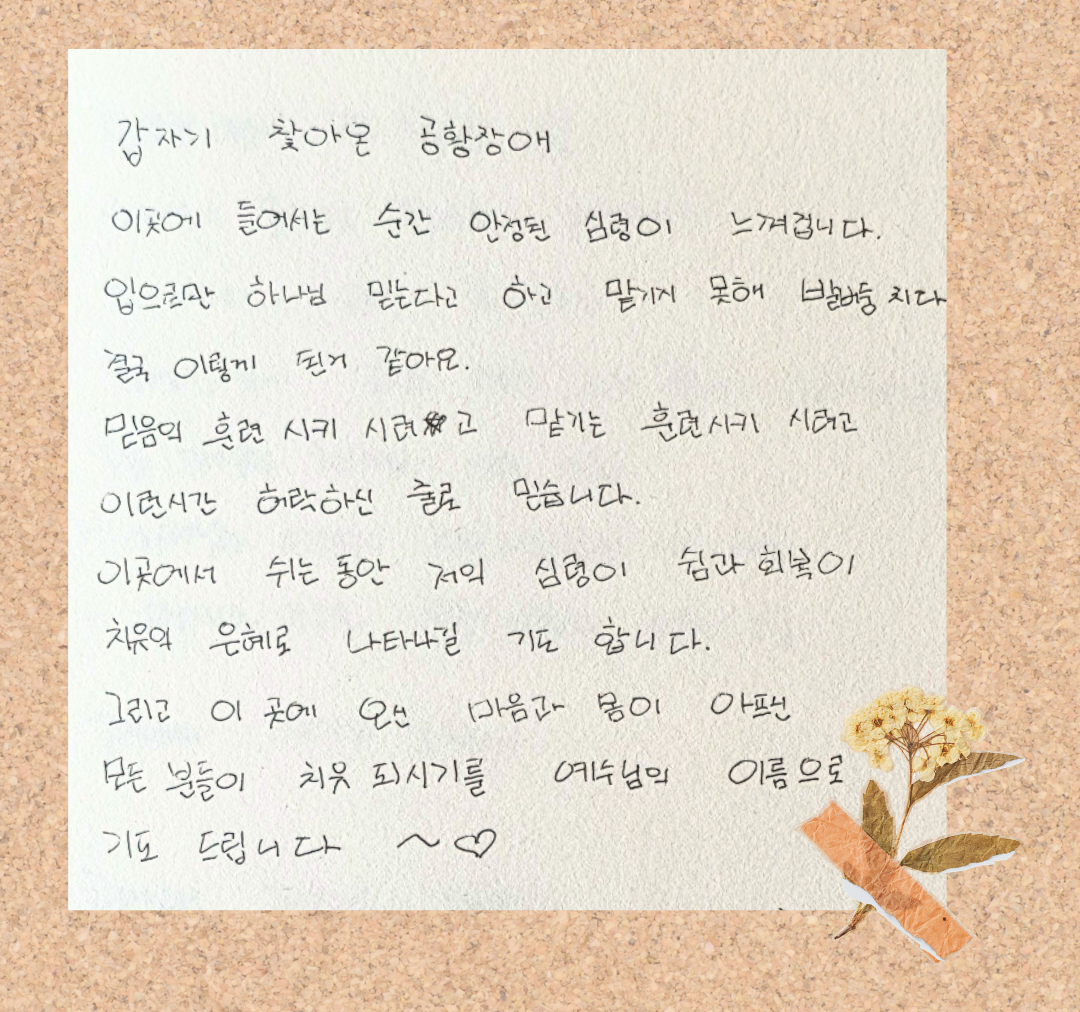 갑자기 찾아온 공황장애
이곳에 들어서는 순간 안정된 심령이 느껴겁니다.
입으로만 하나님 믿는다고 하고 맡기지 못해 발버둥 치다
결국 이렇게 된거 같아요.
믿음의 훈련 시키 시려고 맡기는 훈련시키 시려고
이런시간 허락하신 줄로 믿습니다.
이곳에서 쉬는 동안 저의 심령이 쉼과 회복이
치유의 은혜로 나타나길 기도 합니다.
그리고 이 곳에 오신 마음과 몸이 아프신
모든 분들이 치유 되시기를 예수님의 이름으로
기도 드립니다 ~♡